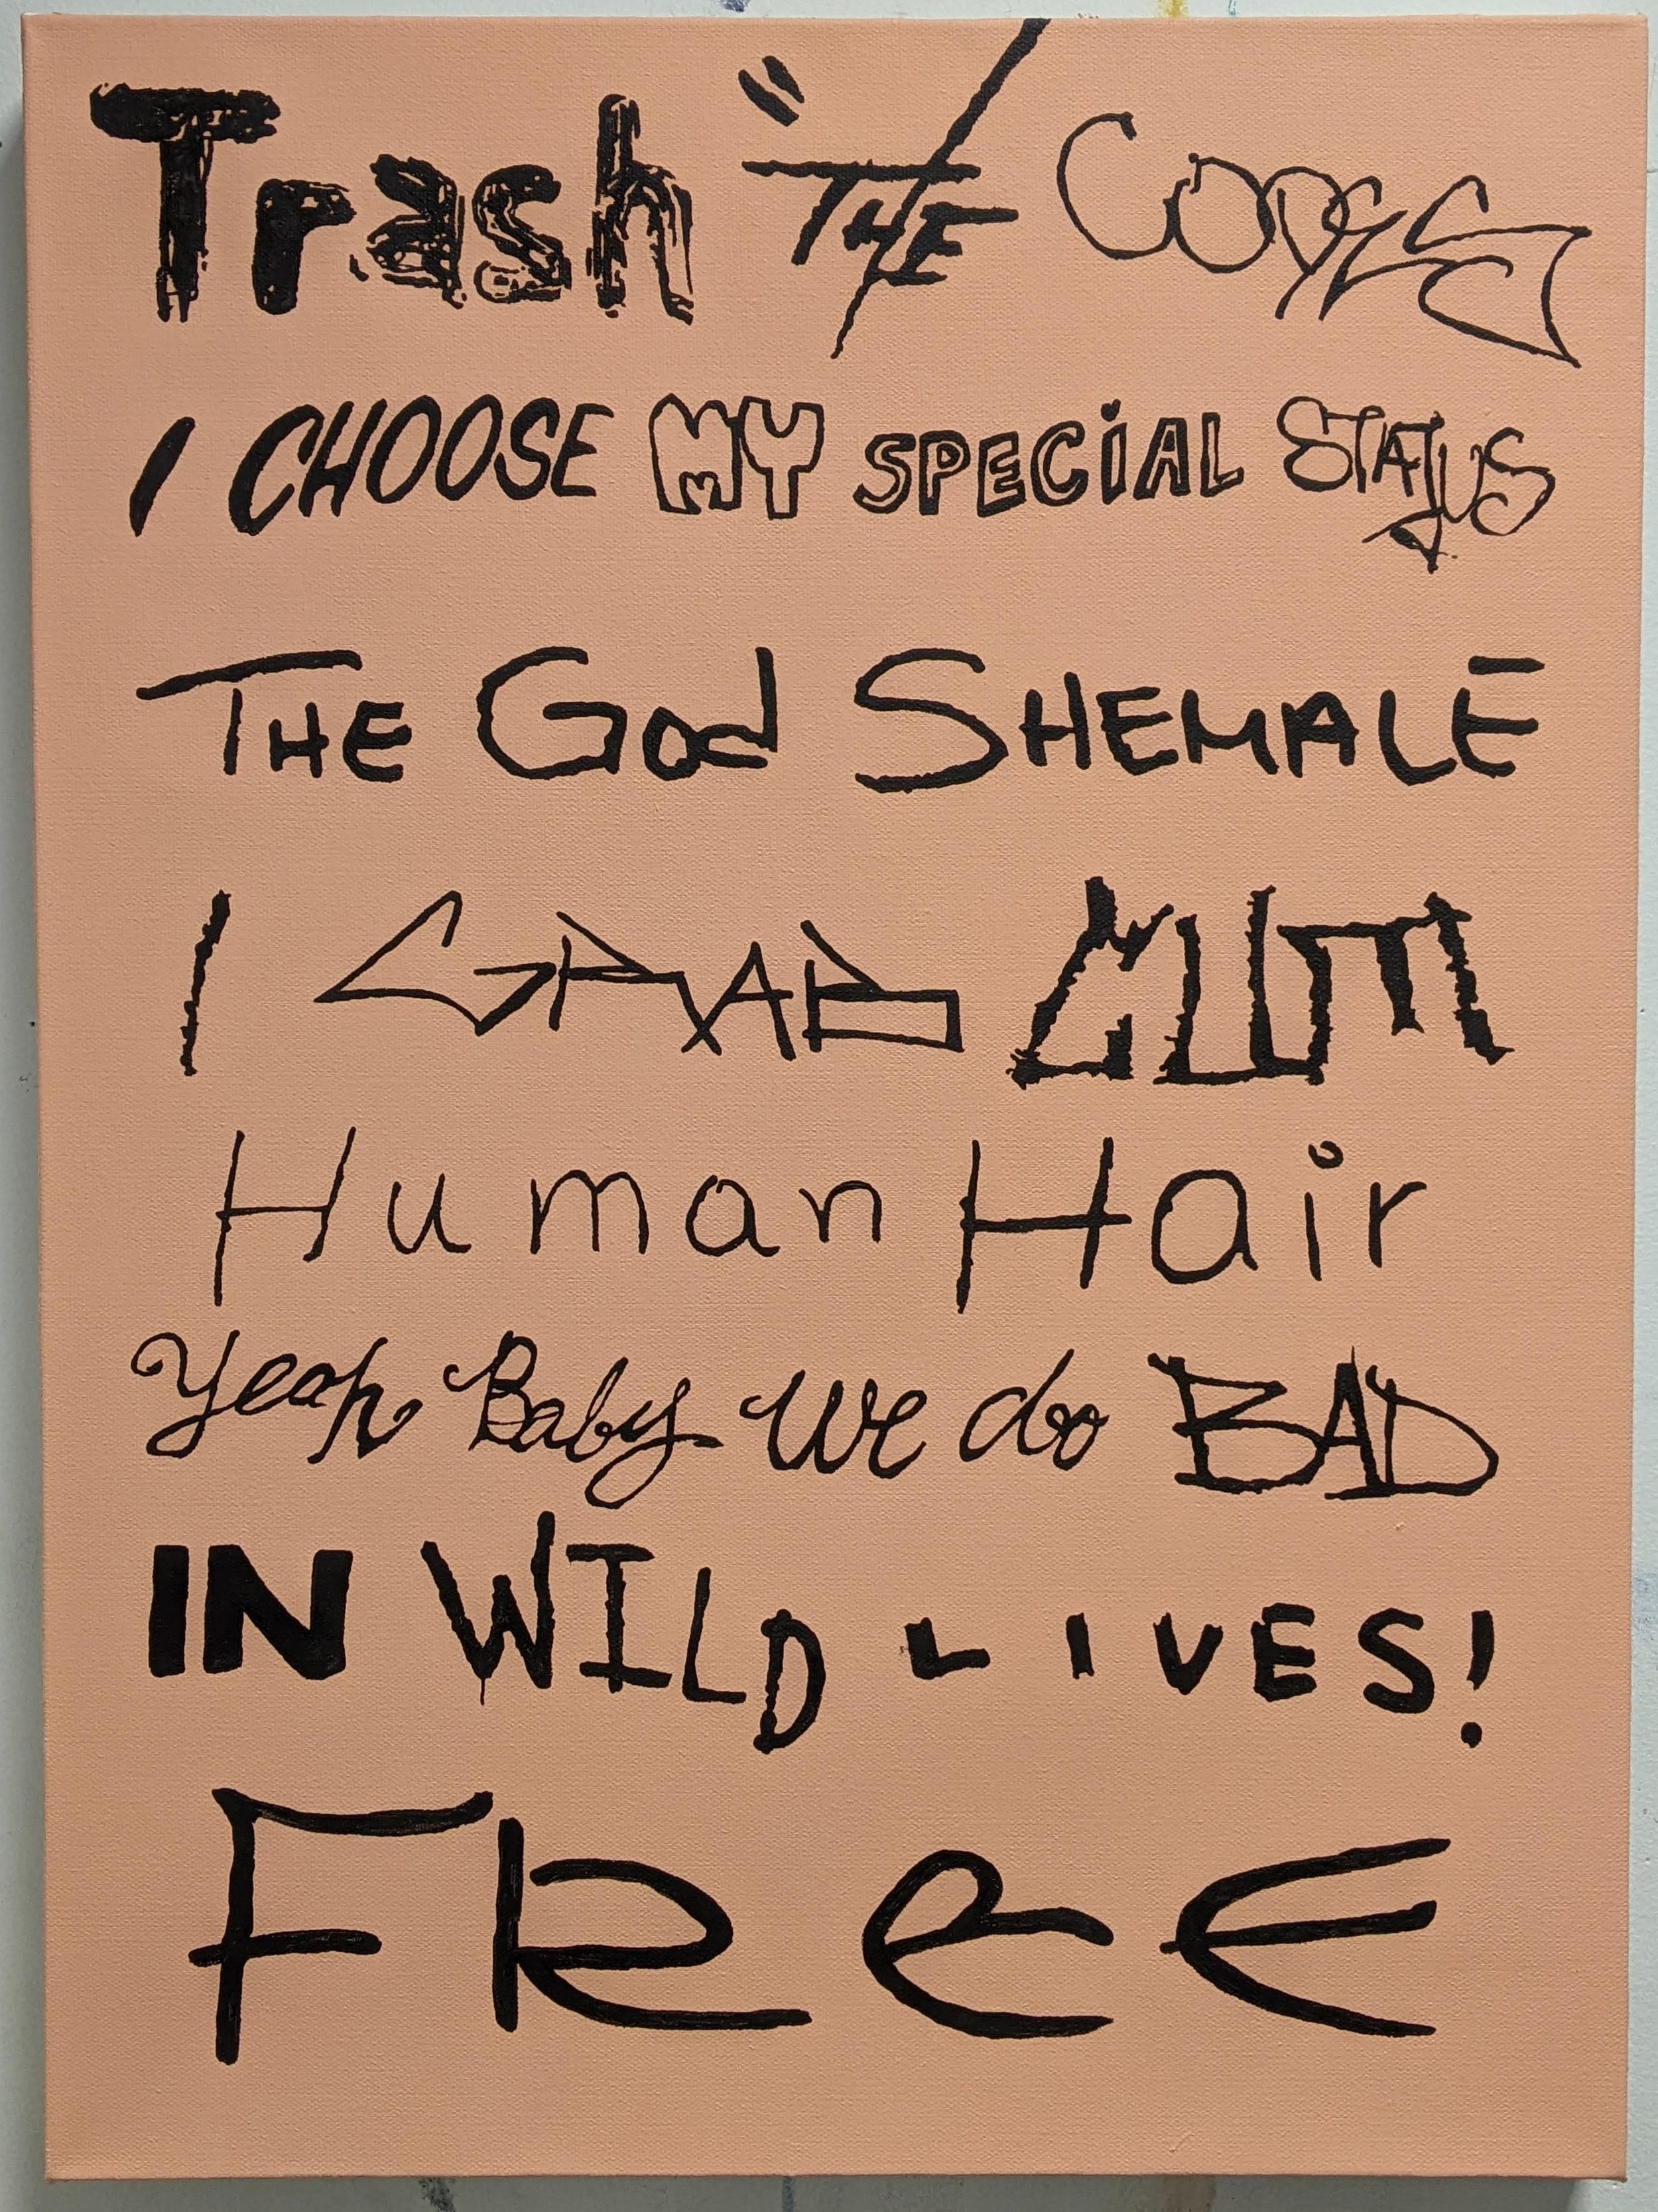 Trash "THE COPS
I CHOOSE MY SPECIAL STATUS
THE God SHEMALE
I GRAB CUM
Human Hair
Yeah Baby We do BAD
IN WILD LIVES!
FReE